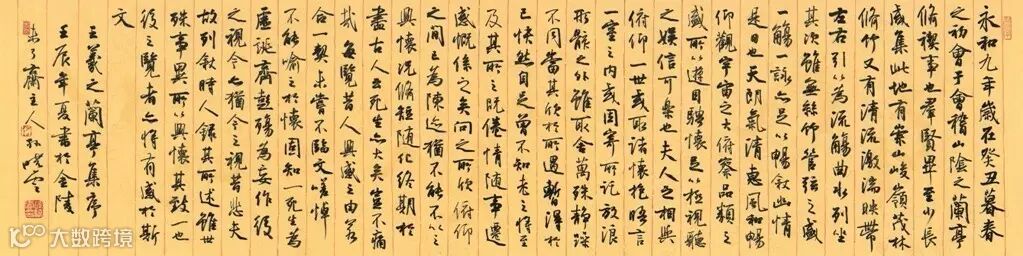 永和九年歲在癸丑暮春
之初會于會稽山陰之蘭亭
脩禊事也羣賢畢至少長
咸集此地有崇山峻嶺茂林
脩竹又有清流激湍映帶
左右引以為流觴曲水列坐
其次雖無絲竹管弦之盛
一觴一詠亦足以暢敘幽情
是日也天朗氣清惠風和暢
仰觀宇宙之大俯察品類之
盛所以遊目騁懷足以極視聽
之娛信可樂也夫人之相與
俯仰一世或取諸懷抱晤言
一室之內或因寄所託放浪
形骸之外雖取舍萬殊靜躁
不同當其欣於所遇暫得於
己怏然自足曾不知老之將至
及其所之既倦情隨事遷
感慨係之矣向之所欣俯仰
之間已為陳迹猶不能不以之
興懷況脩短隨化終期於
盡古人云死生亦大矣豈不痛
哉每覽昔人興感之由若
合一契未嘗不臨文嗟悼
不能喻之於懷固知一死生為
虛誕齊彭殤為妄作後
之視今亦猶今之視昔悲夫
故列敘時人錄其所述雖世
殊事異所以興懷其致一也
後之覽者亦將有感於斯
文
王羲之蘭亭集序
壬辰年夏書於金陵
未了齋主人孫曉雲
大数跨境